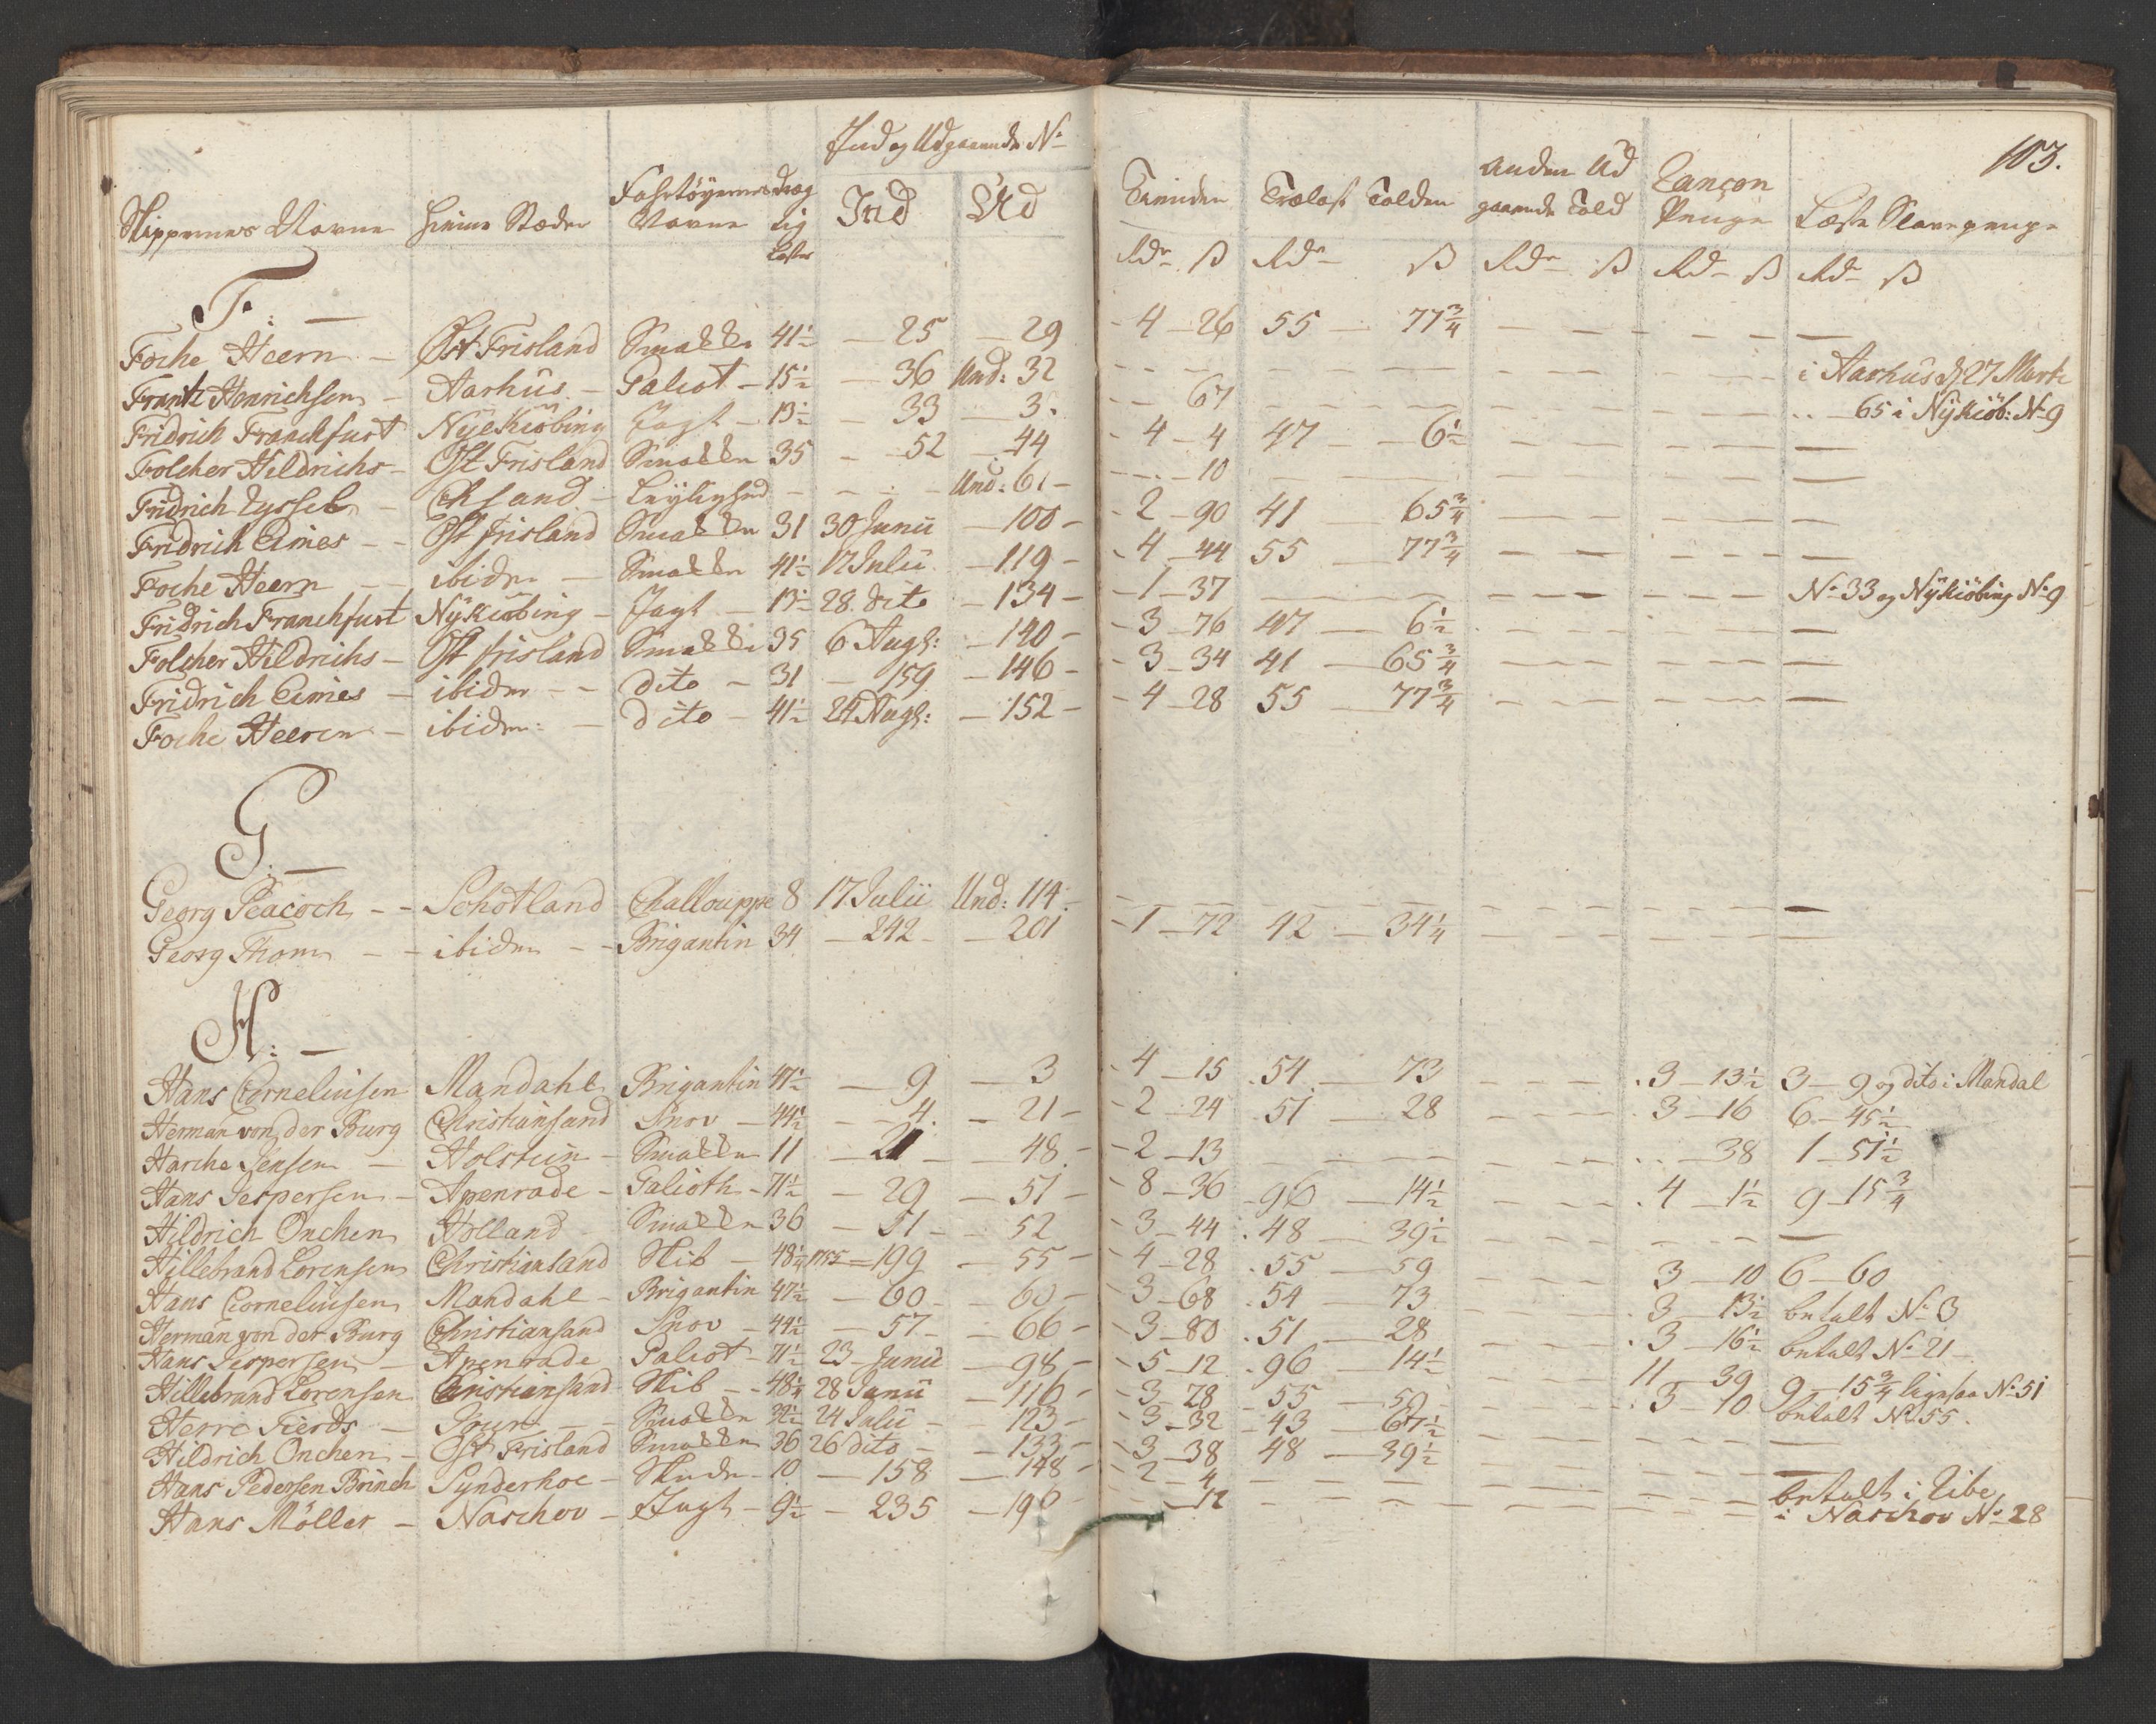 103.
Ind og Udgaaende No
Skippernes Navne Hiemme Stæder Fahrtöyernes Navne Dræg tig Læster Ind Ud Tienden Trælast Tolden Anden Ud gaaende Told Rançon Penge Læste Slavepenge
Rdr ß Rdr ß Rdr ß Rd ß Rd ß
F. —
Foche Heern — Øst Frisland Smakke 41½ — 25 — 29 - 4 - 26 55 — 77¾ — — — — —
Frantz Henrichsen — Aarhus — Galiot — 15½ — 36 Und: 32 — — — — i Aarhus d 27 Marti
Fridrich Franchfurt Nÿekiöbing Jagt — 13½ — 33 — 3. — — 67 — — — — 65 i Nÿkiöb: No 9
Folcher Hildrichs — Ost Frisland Smakke 35 — 52 — 44 - 4 - 4 47 — 6½ — — — —
Fridrich — Leÿlighed — — — Und: 61 — — 10 — — — —
Fridrich Eimes — Ost frisland Smakke 31 30 Junii — 100 - 2 - 90 41 65¾ — — — —
Foche Heern — ibidem — Smakke 41½ 12 Julii — 119 - 4 - 44 55 — 77¾ — — — —
Fridrich Franchfurt Nÿkiöbing — Jagt — 13½ 28. dito — 134 - 1 - 37 — — — — No 33 og Nÿkiöbing No 9
Folcher Hildrichs — Ost frisland Smakke 35 6 Augs: — 140 - 3 - 76 47 — 6½ — — — —
Fridrich Eimes — ibidem — dito — 31 — 159 — 146 - 3 - 34 41 — 65¾ — — — —
Foche Heeren — ibidem: — dito — 41½ 24 Augs: — 152 - 4 - 28 55 — 77¾ — — — —
G. —
Georg Peacoch — Schotland Challouppe 8 17 Julii Und: 114. — — — — —
Georg Thom — ibidem — Brigantin 34 — 242 — 201 - 1 - 72 42 — 34¼ — — — —
H: —
Hans Corneliusen Mandahl Brigantin 47½ — 9 — 3 - 4 - 15 54 — 73 — — 3 - 13½ 3 - 9 og dito i Mandal
Herman von der Burg Christiansand Snov — 44½ — 4. — 21 - 2 - 24 51 — 28 — — 3 - 16 6 - 45½
Harche Jensen — Holstein — Smakke 11 — 21 — 48 - 2 - 13 — — — 38 1 - 51½
Hans Jespersen — Apenrade — Galioth — 71½ — 29 — 51 - 8 - 36 96 — 14½ — — 4 - 1½ 9 - 15¾
Hildrich Onchen Holland Smakke 36 — 51 — 52 - 3 - 44 48 — 39½ — — — —
Hillebrand Lorensen Christiansand Skib — 48¼ 1755 = 199 — 55 - 4 - 28 55 — 59 3 - 10 6 - 60
Hans Corneliusen Mandahl — Brigantin 47½ — 60 — 60 - 3 - 68 54 — 73 — 3 - 13½ betalt No 3
Herman von der Burg Christiansand Snov — 44½ — 57 — 66 - 3 - 80 51 — 28 — 3 - 16½ betalt No 21
Hans Jespersen — Apenrade Galiot — 71½ 23 Junii — 98 - 5 - 12 96 — 14½ — 11 - 39 9 - 15¾ ligesaa No 51
Hillebrand Lorensen Christiansand Skib — 48¼ 28 Junii — 116 - 3 - 78 55 — 59 — 3 - 10 betalt No 55.
Herre Tierds — Smakke 32½ 24 Julii — 123 - 3 - 32 43 — 67½ — — — —
Hildrich Onchen — Ost Frisland Smakke 36 26 dito — 133 - 3 - 38 48 — 39½ — — — —
Hans Pedersen Brinch Synderhoe — Skude — 10 — 158 — 148 - 2 - 4 — — — — betalt i Ribe
Hans Möller — Naschov — Jagt — 9½ — 235 — 196 — 12 — — — — i Naschov No 28